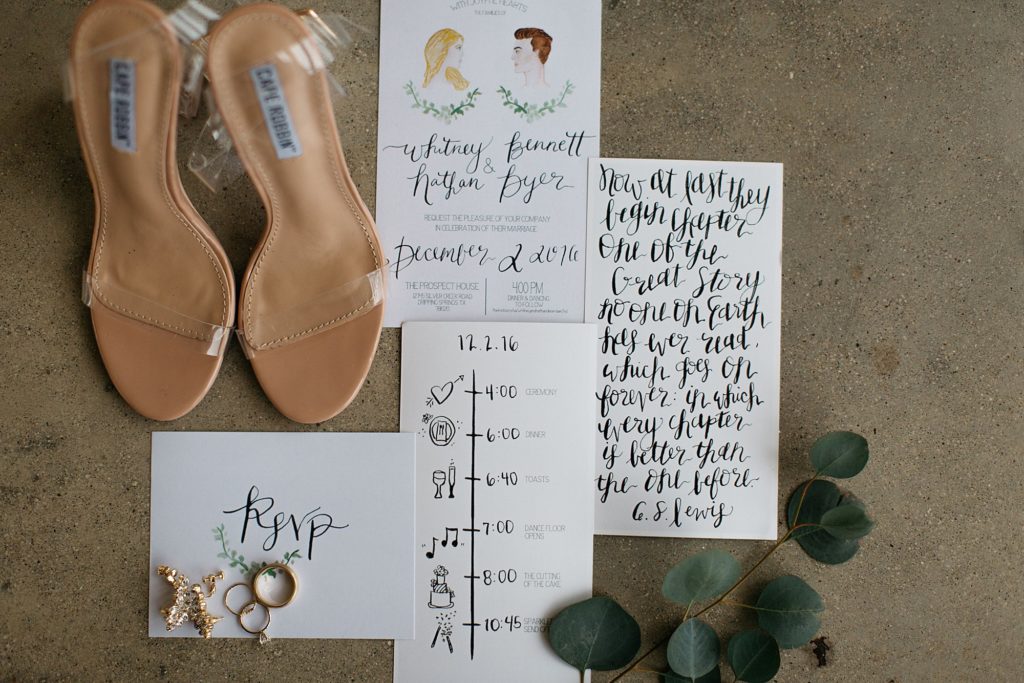 CAPE ROBBIN
CAPE ROBBIN
WITH JOYFUL HEARTS
THE FAMILIES OF
Whitney Bennett
&
Nathan Dyer
REQUEST THE PLEASURE OF YOUR COMPANY
IN CELEBRATION OF THEIR MARRIAGE
December 2 2016
THE PROSPECT HOUSE
SILVER CREEK ROAD
DRIPPING SPRINGS, TX
78620
4:00 PM
DINNER & DANCING
TO FOLLOW
Now at last they
begin Chapter
One of the
Great Story
no one on Earth
has ever read,
which goes on
forever: in which
every chapter
is better than
the one before.
C.S. Lewis
12.2.16
4:00 CEREMONY
6:00 DINNER
6:40 TOASTS
7:00 DANCE FLOOR
OPENS
8:00 THE CUTTING
OF THE CAKE
10:45 SPARKLER
SEND OFF
rsvp